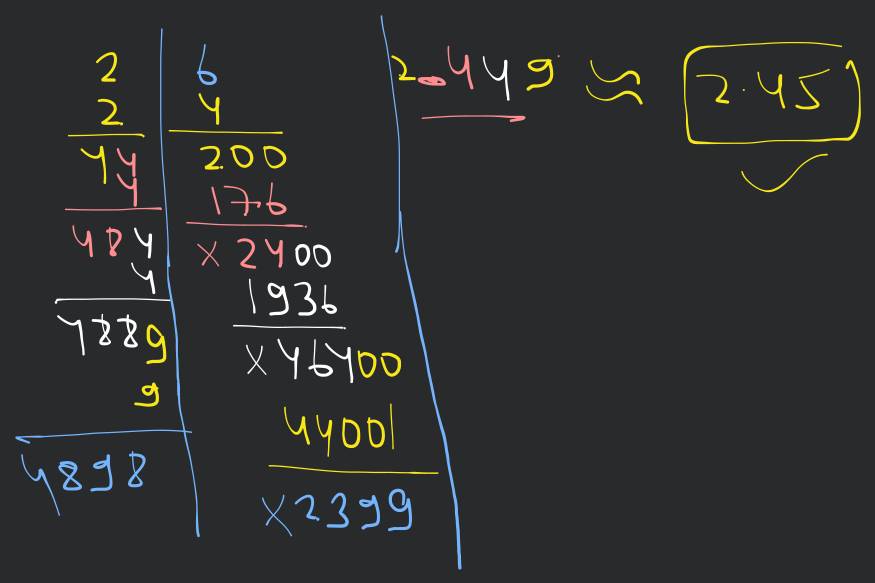 2 6 2.449 ≈ 2.45
2 4
44 200
4 176
484 × 2400
4 1936
4889 × 46400
9 44001
4898 × 2399